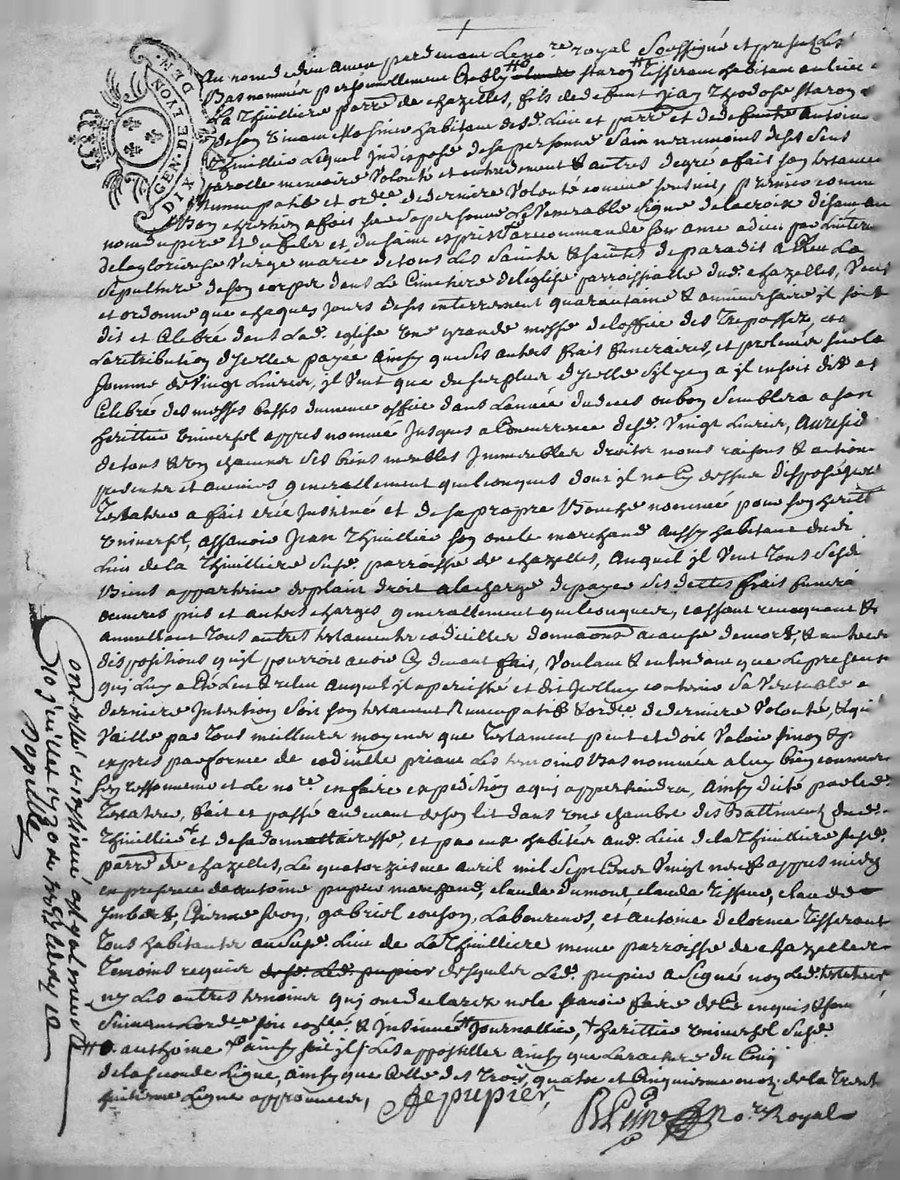 GEN. DE LYON
DIX DEN.
Au nom de dieu amen pardevant Le no.re royal Soussigné et present Les
Bas nommés personnellement Estably Staron tisserant habitant au lieu
La Thuilliere parr.e de chazelles, fils de deffunt Jean Theodose Staron
habitant dud. Lieu et parr.e et de deffunte antoinette
Thuillier Lequel Indisposé de sa personne Sain neanmoins de ses Sens
parolle memoire Volonté et entendement & autres de gre a fait son testament
Nuncupatif et ord.e de derniere Volonté comme sensuit, premier comme
Bon chrestien a fait sur sa personne Le Venerable Signe de la croix disant au
nom du pere et du fils et du saint esprit a recommandé son ame a dieu par L'interc
de la glorieuse Vierge marie de tous Les Saints & saintes de paradis a Eleu La
Sepulture de son corps dans Le Cimetiere de l'eglise parroissialle dud. chazelles, Veut
et ordonne que chaques jours de ses enterrement quarantaine & anniversaire il soit
dit et Celebré dans Lad. eglise Une grande messe de l'office des Trepassez,
La retribution d'jcelles payée ainsy que les autres frais funeraires, et prelevée sur la
somme de Vingt Livres, il Veut que du surplus d'jcelle s'il y en a il en soit dit et
Celebré des messes basses du meme office dans L'année du deces ou bon Semblera a son
heritier Universel appres nommé Jusques a Concurrence desd. Vingt Livres, Au residu
de tous & Un chacuns ses biens meubles Immeubles droits noms raisons & actions
presents et avenirs generallement quelconques dont il n'a Cy dessus disposé, led.
Testateur a fait crée Institué et de sa propre Bouche nommé pour son herittier
Universel, assavoir Jean Thuillier son oncle marchand aussy habitant dud.
Lieu de la Thuilliere Susd. parroisse de chazelles, auquel il Veut Tous Sesd.
Biens appartenir de plain droit a la charge de payer ses dettes frais funerai
œuvres pies et autres charges generallement quelconques, cassant revoquant &
annullant Tous autres testaments codicilles donnaons a cause de mort, & autres
dispositions qu'il pourroit avoir Cy devant fait, Voulant & entendant que Le present
qui Luy a eté Leu & releu auquel il a persisté et dit Jcelluy contenir Sa Veritable
derniere Intention Soit son testament Nuncupatif & ord.e de derniere Volonté, & qu'il
Vaille par Tous meilleurs moyens que testament peut et doit Valoir sinon &
expres par forme de codicille priant Les temoins Bas nommés a luy bien connus
et Le no.re en faire expedition a qui appartiendra, ainsy dicté par led.
Testateur, fait et passé au devant de son lit dans Une chambre des Battiments dud.
Thuillier et de sa domaitaresse, habiter aud. Lieu de la Thuilliere susd.
parr.e de chazelles, Le quatorzieme avril mil Sept Cents Vingt neuf appres midy
en presence de antoine pupier marchand, claude dumont, claude Tisseur, claude
Imbert, Etienne, gabriel, Laboureurs, et antoine delorme tisserant
Tous habitants au Susd. Lieu de La Thuilliere meme parroisse de chazelles
Temoins requis desquels Led. pupier a Signé non Led. testateur
ny Les autres temoins qui ont declarez ne le sçavoir faire de Ce enquis &
Suivant L'ord.ce & Insinué Journallier, + herittier Universel Susd.
anthoine ainsy Les appostilles ainsy que La rature du Cinq
de la seconde Ligne, ainsy que Celle des Trois, quatre et Cinquieme mot de la Trent
huitieme Ligne approuvées,
A pupier
no.re Royal
et insinué
10 juillet 1730